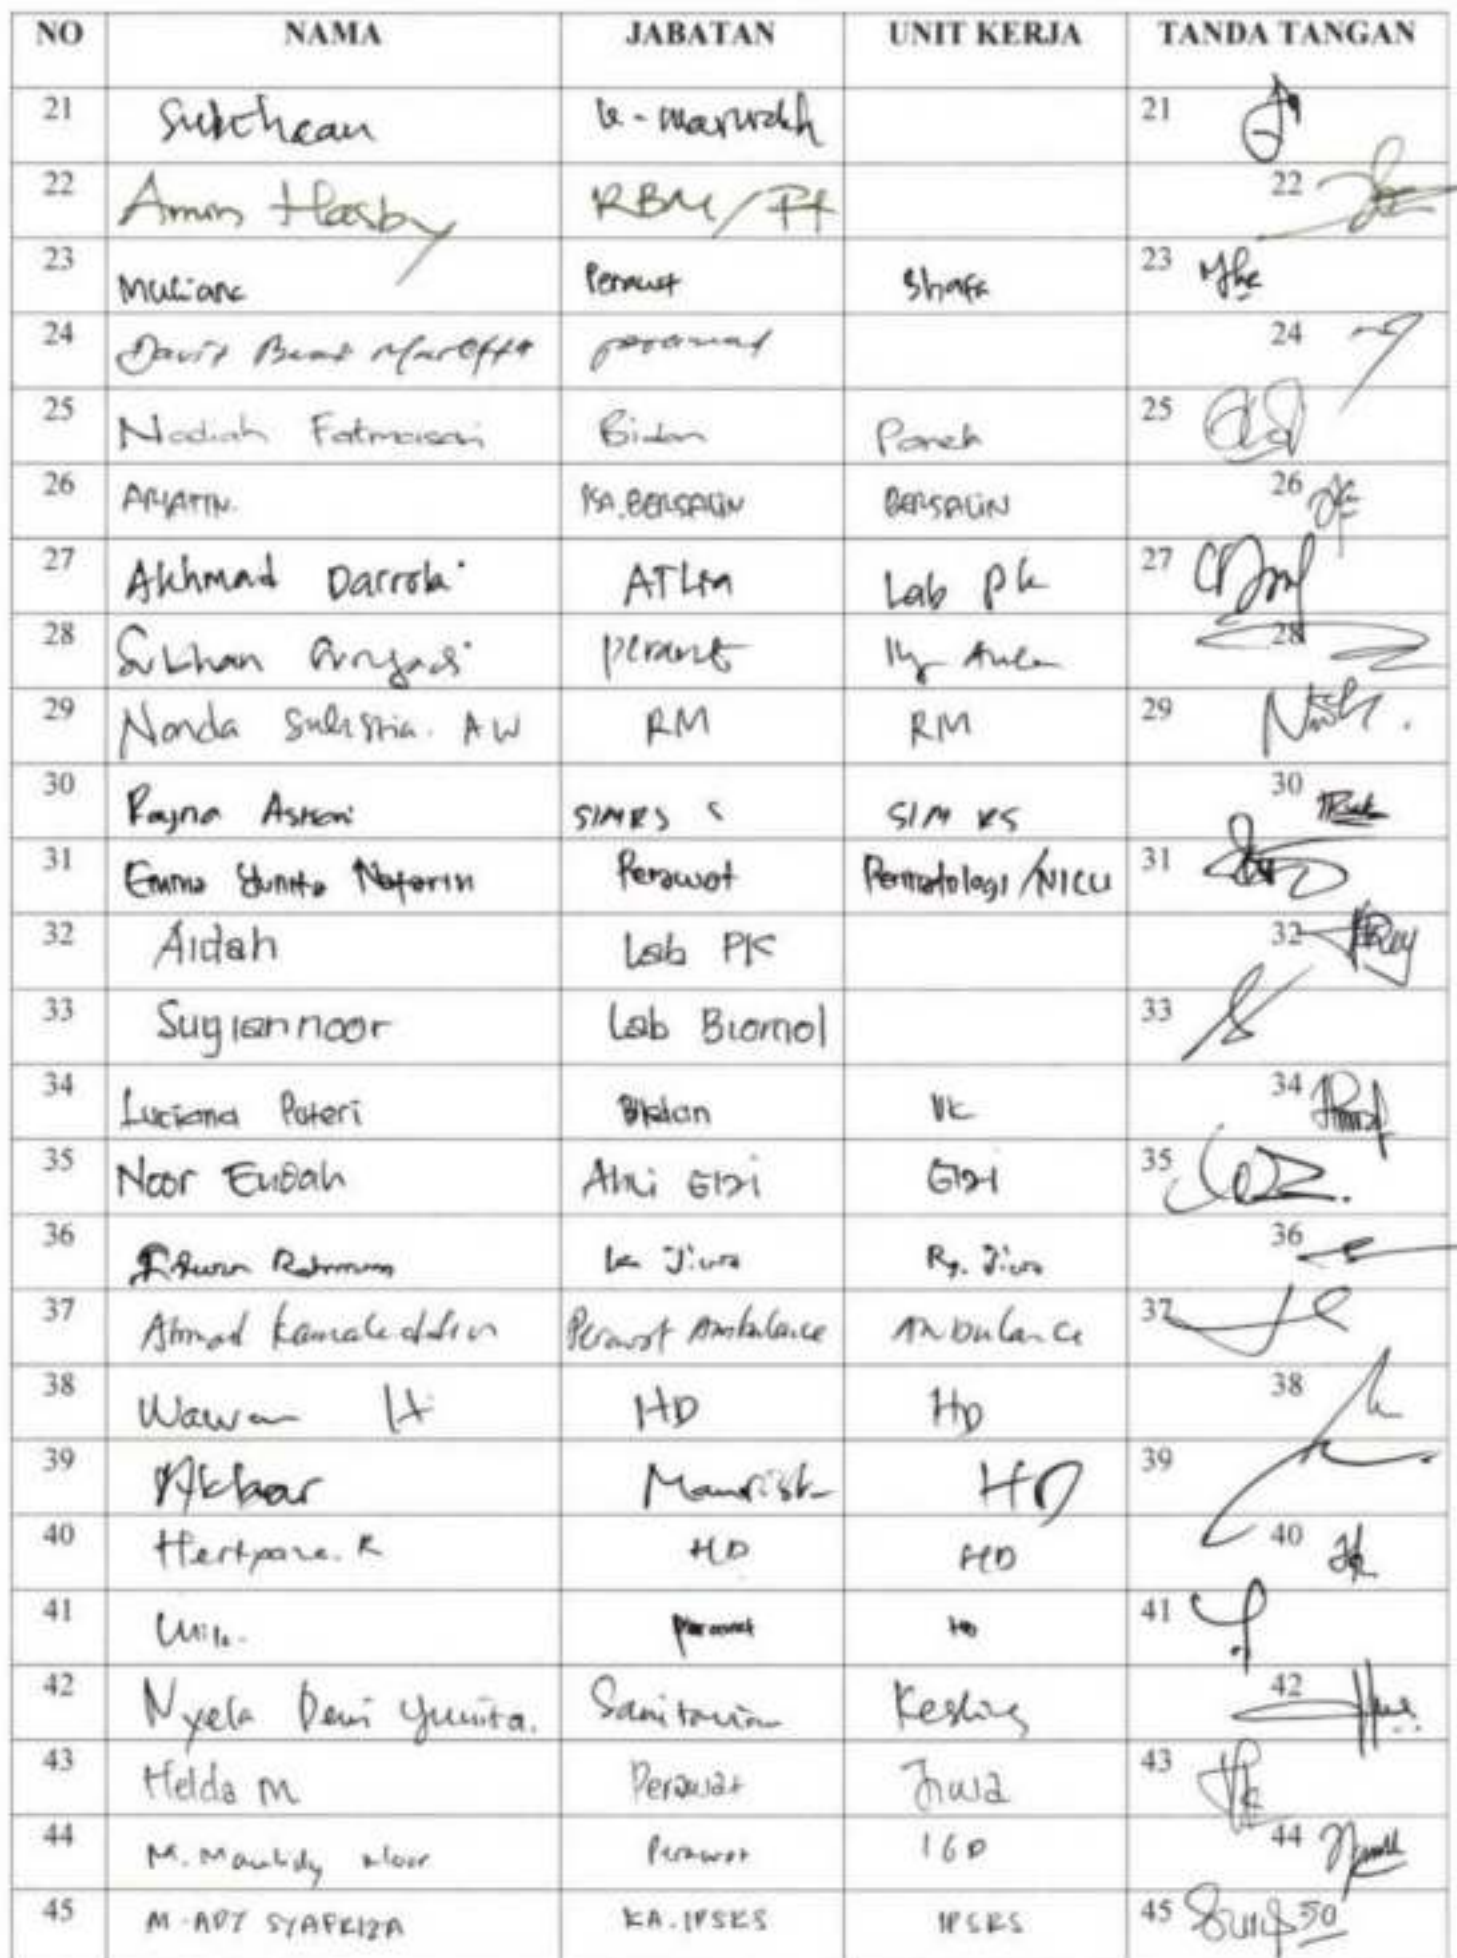 NO NAMA JABATAN UNIT KERJA TANDA TANGAN
21 21
22 Amin Hasby RBM/ 22
23 Muliana Perawat Shafa 23
24 24
25 Nadiah Fatmasari Bidan Ponek 25
26 ARIATIN. KA.BERSALIN BERSALIN 26
27 Akhmad Darrobi ATLM Lab PK 27
28 28
29 Nonda Sulistia. AW RM RM 29
30 Rayna SIMRS SIM RS 30
31 Emma Yunita Perawat Perinatologi/NICU 31
32 Aidah Lab PK 32
33 Sugiannoor Lab Biomol 33
34 Luciana Puteri Bidan VK 34
35 Noor Endah Ahli Gizi Gizi 35
36 Jiwa Rg. Jiwa 36
37 Ahmad Kamaluddin Perawat Ambulance Ambulance 37
38 Wawan H HD HD 38
39 Akbar HD 39
40 HD HD 40
41 Perawat HD 41
42 Nyela Dewi Yunita. Sanitarian Kesling 42
43 Helda M Perawat Jiwa 43
44 M. Maulidy Noor Perawat IGD 44
45 M. ADY SYAFRIZA KA.IPSRS IPSRS 45